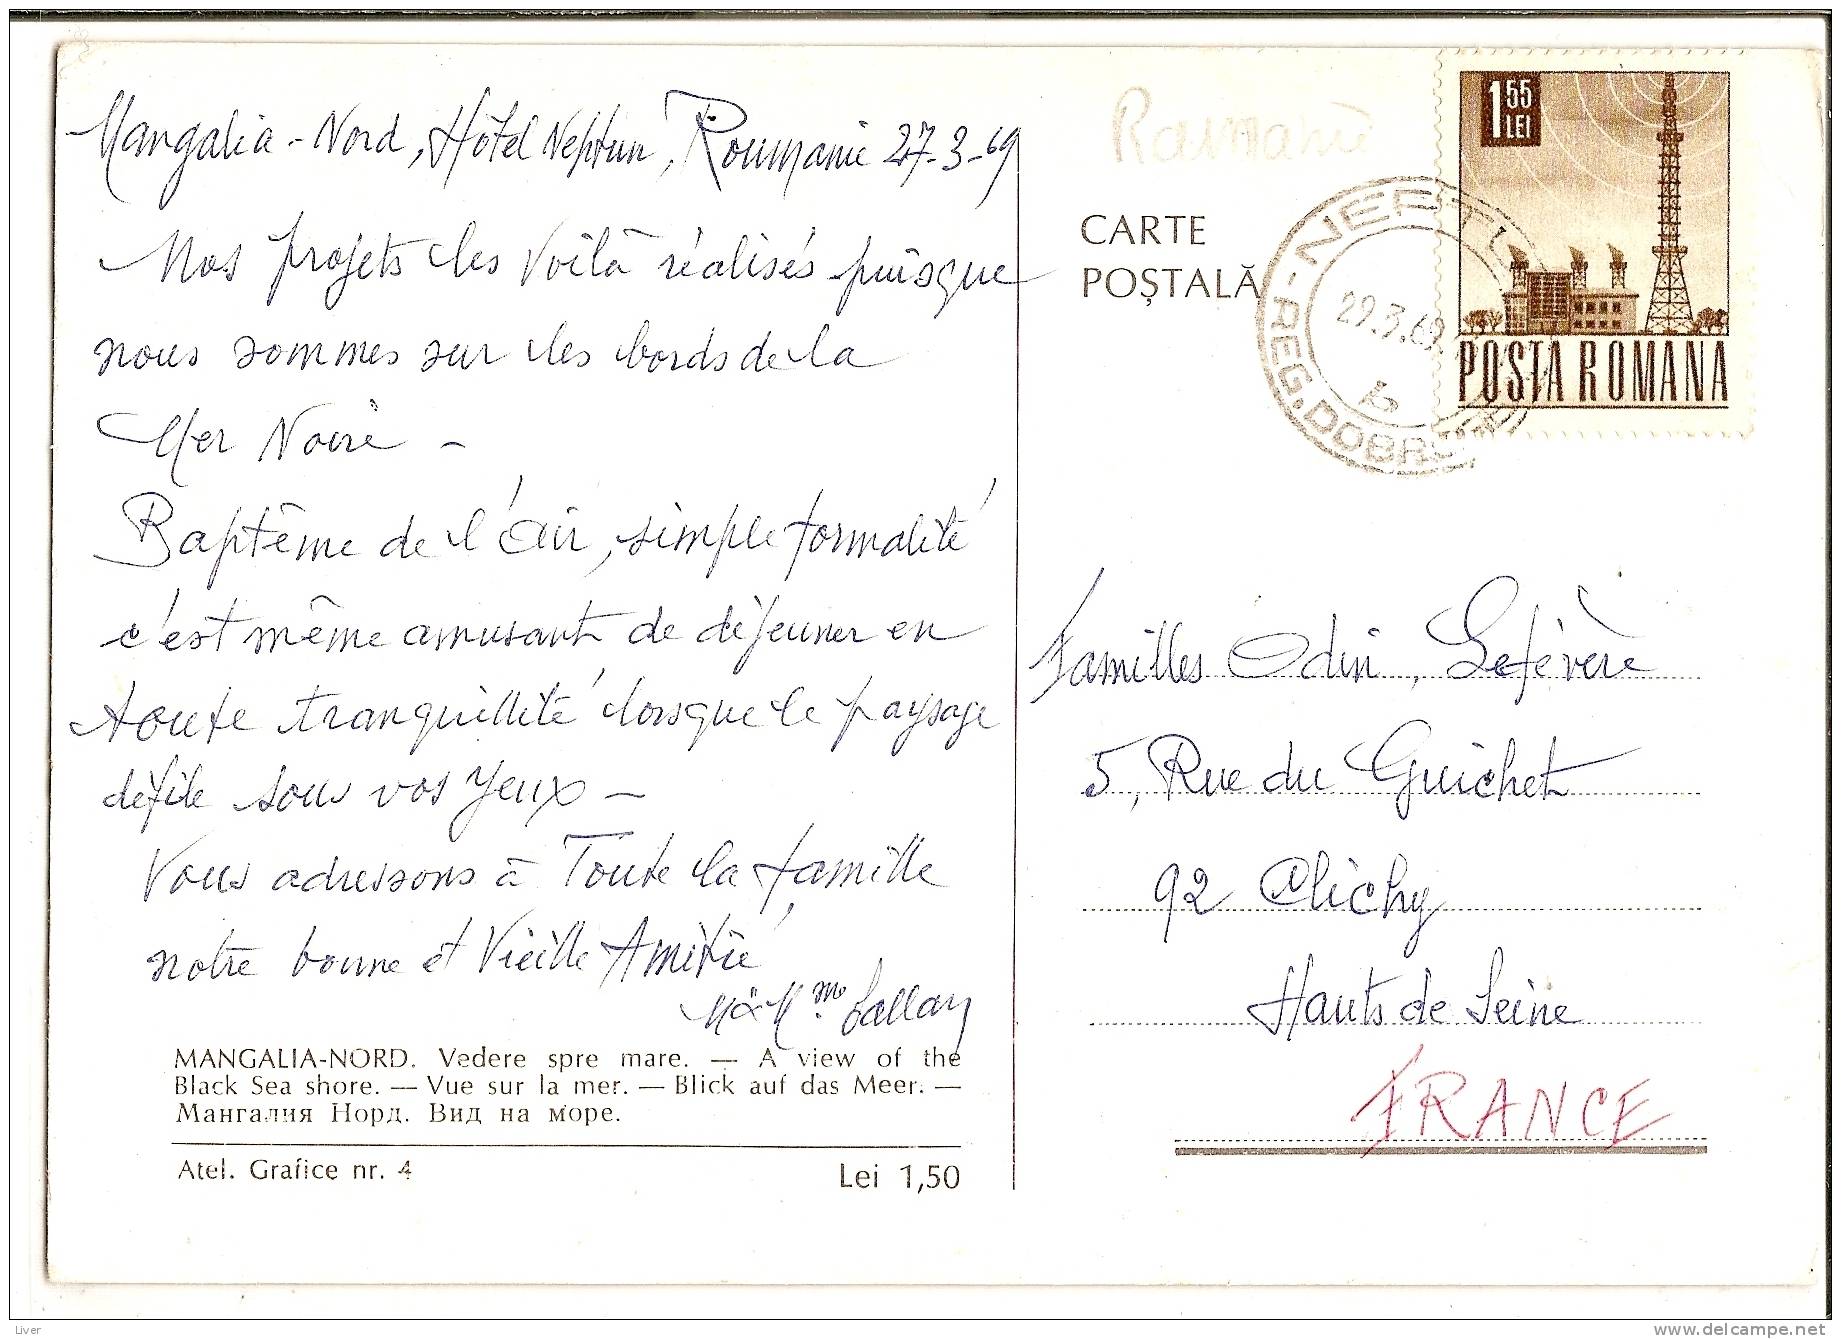 Mangalia-Nord, Hôtel Neptun, Roumanie 27-3-69
Nos projets les voilà réalisés puisque
nous sommes sur les bords de la
Mer Noire -
Baptême de l'Air, simple formalité
c'est même amusant de déjeuner en
toute tranquillité lorsque le paysage
défile sous vos yeux -
Vous adressons à Toute la famille
notre bonne et Vieille Amitié
MANGALIA-NORD. Vedere spre mare. — A view of the
Black Sea shore. — Vue sur la mer. — Blick auf das Meer. —
Мангалия Норд. Вид на море.
Atel. Grafice nr. 4
Lei 1,50
Roumanie
CARTE
POȘTALĂ
1 55
LEI
POSTA ROMANA
29.3.69
REG. DOBR
Familles Odin, Lefévère
5, Rue du Guichet
92 Clichy
Hauts de Seine
FRANCE
Liver
www.delcampe.net